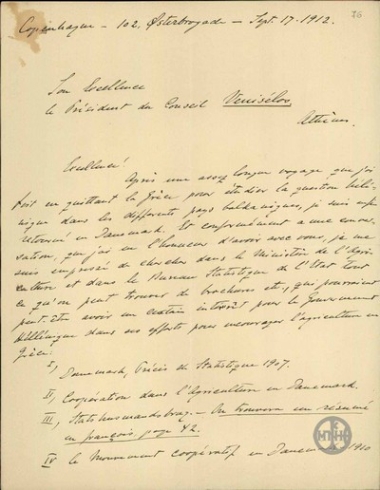 26
Copenhague - 102. Østerbrogad - Sept. 17. 1912.
Son Excellence
le Président du Conseil Venisélos
Athènes.
Excellence!
Après une assez longue voyage que j'ai
fait en quittant la Grèce pour étudier la question
dans les differents pays balcaniques, je suis
retourné en Danemark. Et conformément a une conver-
sation, que j'ai eu l'honneur d'avoir avec vous, je me
suis empressé de chercher dans le Ministère de l'Agri-
culture et dans le Bureau Statistique de l'Etat tout
ce qu'on peut trouver de brochures etc., qui pourraient
peut-être avoir un certain intérêt pour le Gouvernement
Hellénique dans ses efforts pour encourager l'agriculture en
Grèce:
I, Danemark, Précis de Statistique 1907.
II, Coopération dans l'Agriculture en Danemark.
III, Statshusmandsbrug. - On trouvera un résumé
en français, page 42.
IV le Mouvement coopératif en Danemark 1910